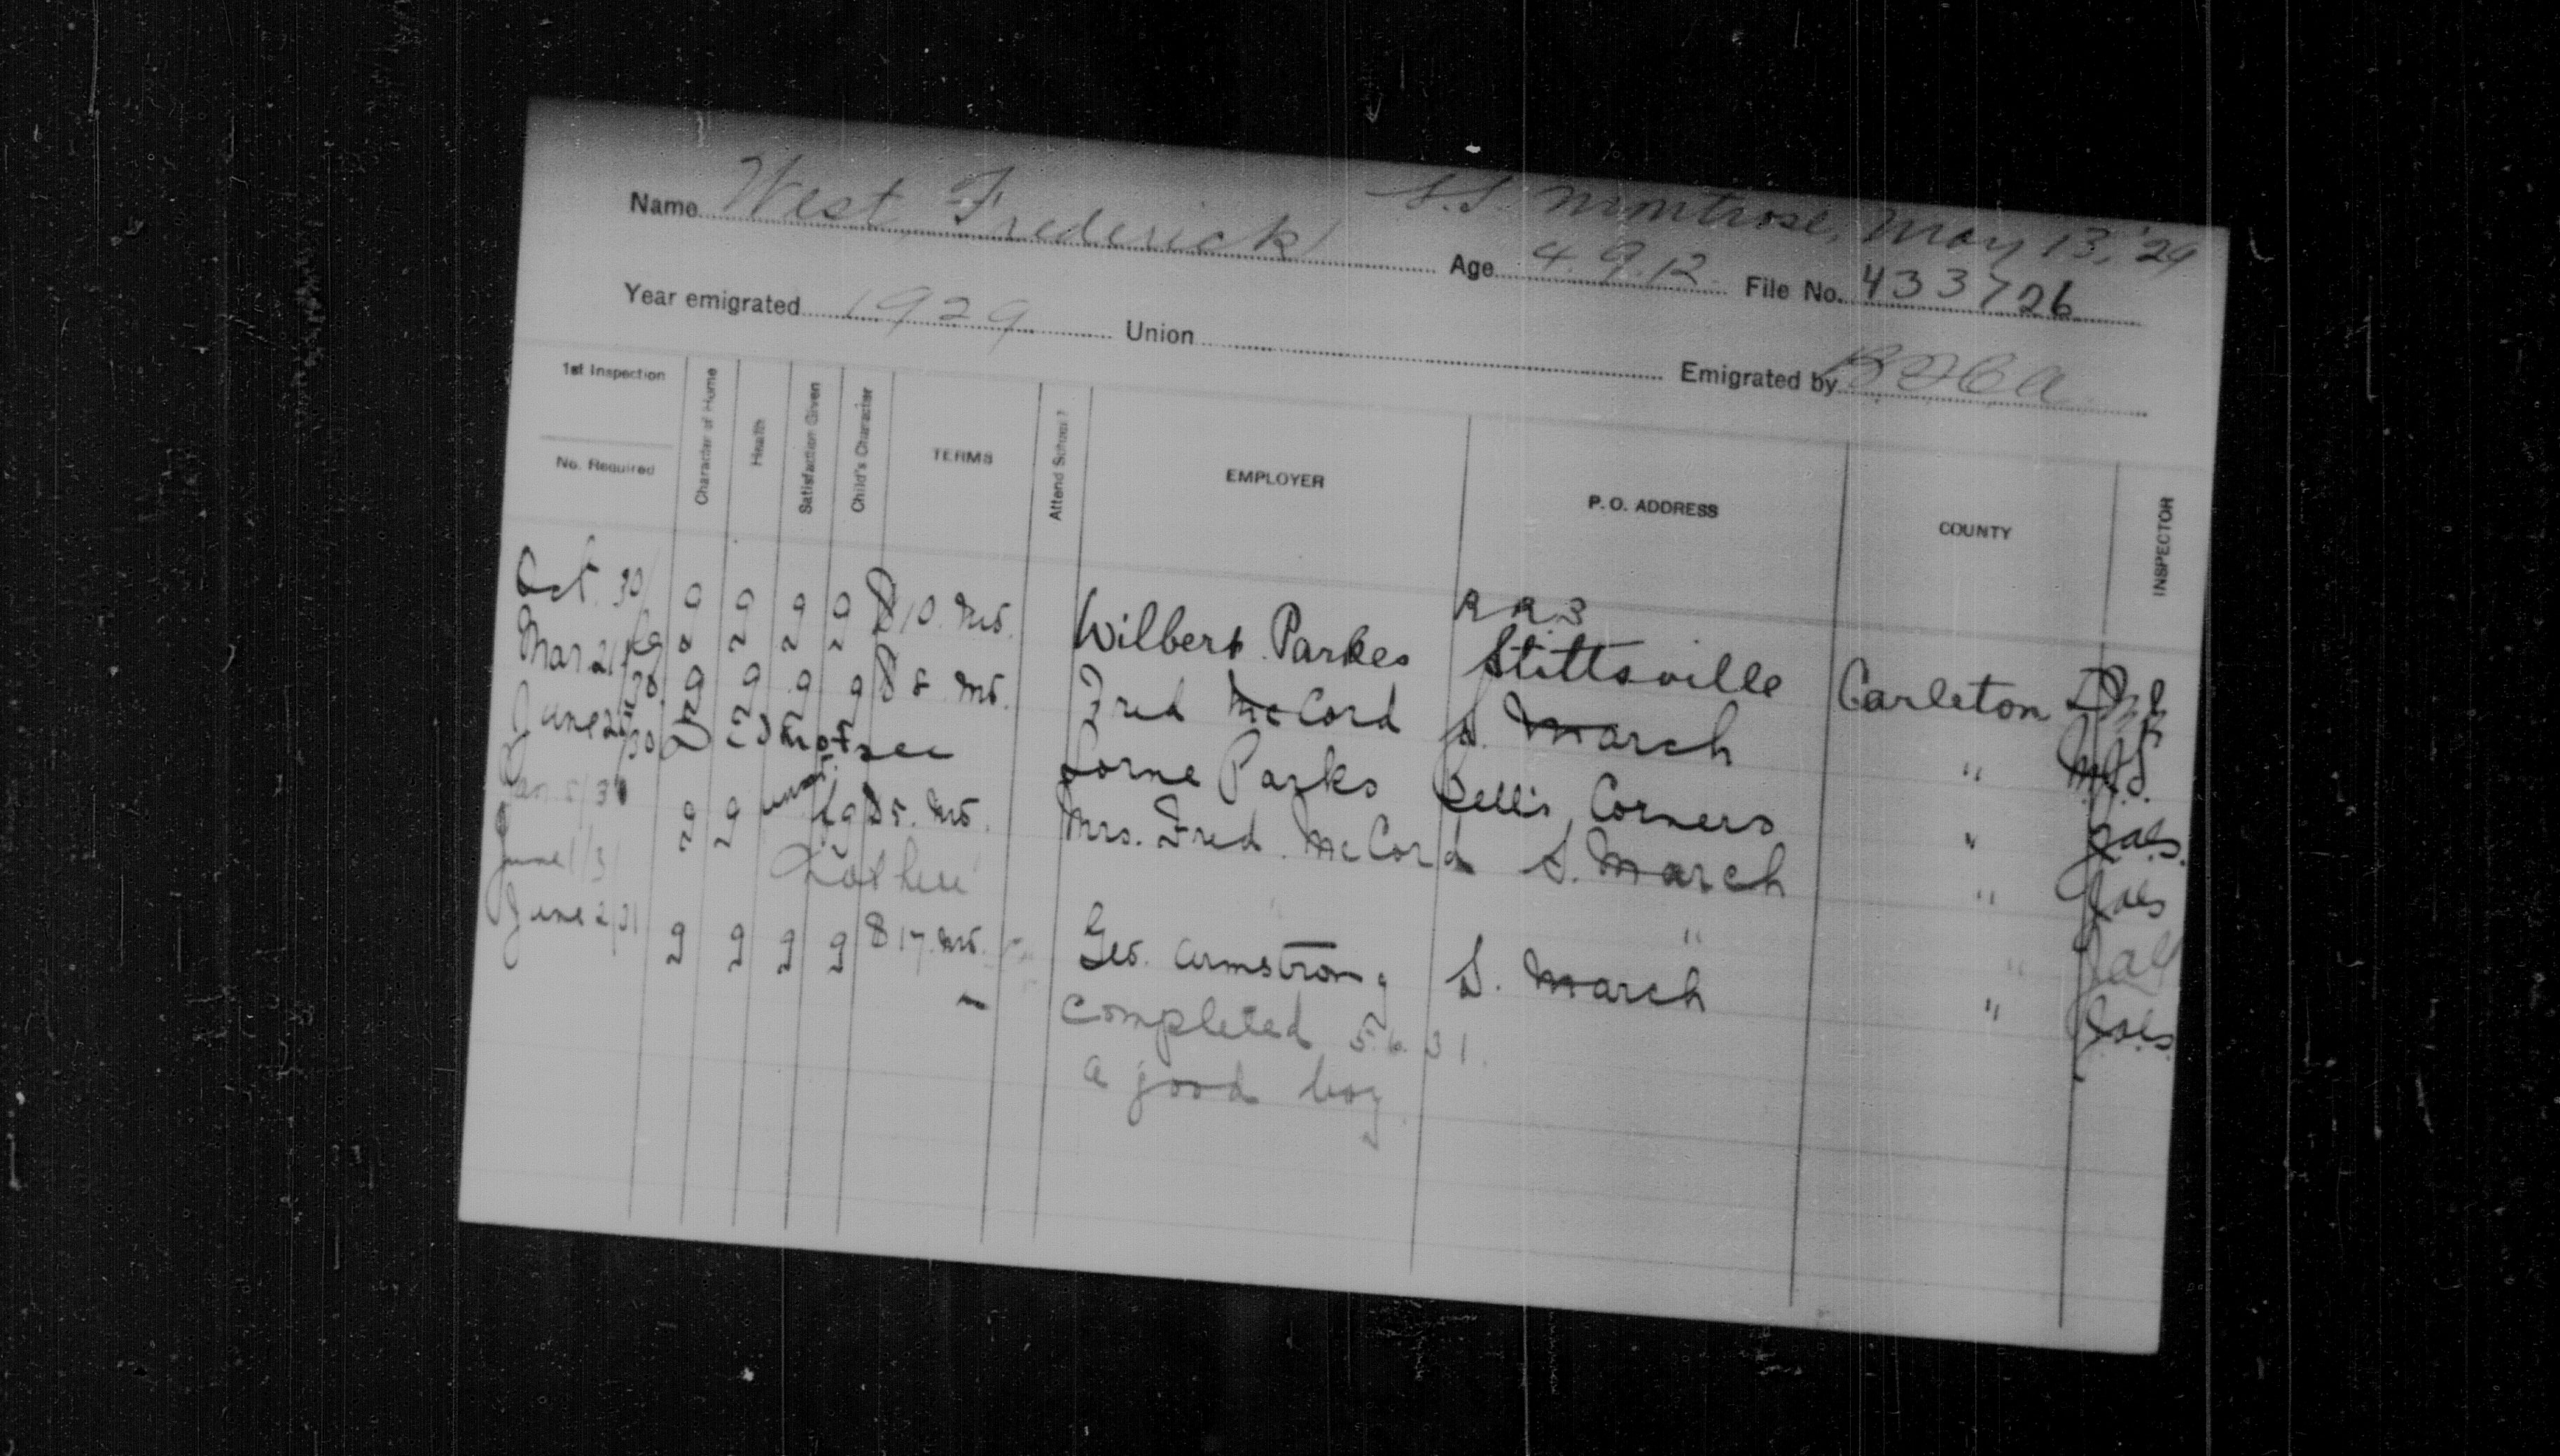 S.S. Montrose, May 13, '29
Name West, Frederick Age 4.9.12 File No. 433726
Year emigrated 1929 Union Emigrated by
1st Inspection
No. Required
Character of Home
Health
Satisfaction Given
Child's Character
TERMS
Attend School?
EMPLOYER
P. O. ADDRESS
COUNTY
INSPECTOR
Oct. 30/29 g g g g $10. mo. Wilbert Parkes RR3 Stittsville Carleton
Mar 21/30 g g g g $8 mo. Fred McCord S. March "
June 25/30 Did not see Lorne Parks Bells Corners "
Jan. 5/31 g g g $5. mo. Mrs. Fred McCord S. March "
June 1/31 " "
June 2/31 g g g g $17. mo. Geo. Armstrong S. March "
Completed 5.6.31.
a good boy